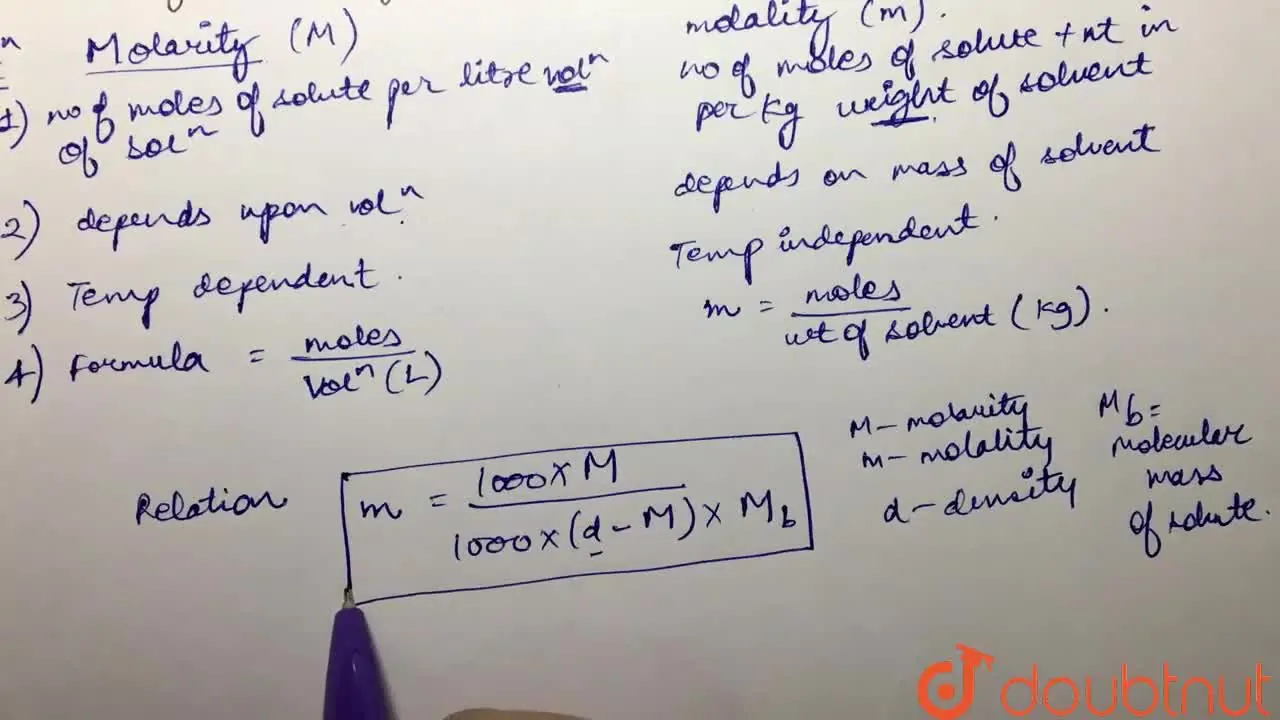 Molarity (M)
1) no of moles of solute per litre volⁿ
of solⁿ
2) depends upon volⁿ
3) Temp dependent.
4) Formula = moles / volⁿ (L)
molality (m).
no of moles of solute + nt in
per kg weight of solvent
depends on mass of solvent
Temp independent.
m = moles / wt of solvent (kg).
Relation m = 1000 x M / 1000 x (d - M) x Mb
M - molarity
m - molality
d - density
Mb =
molecular
mass
of solute.
doubtnut